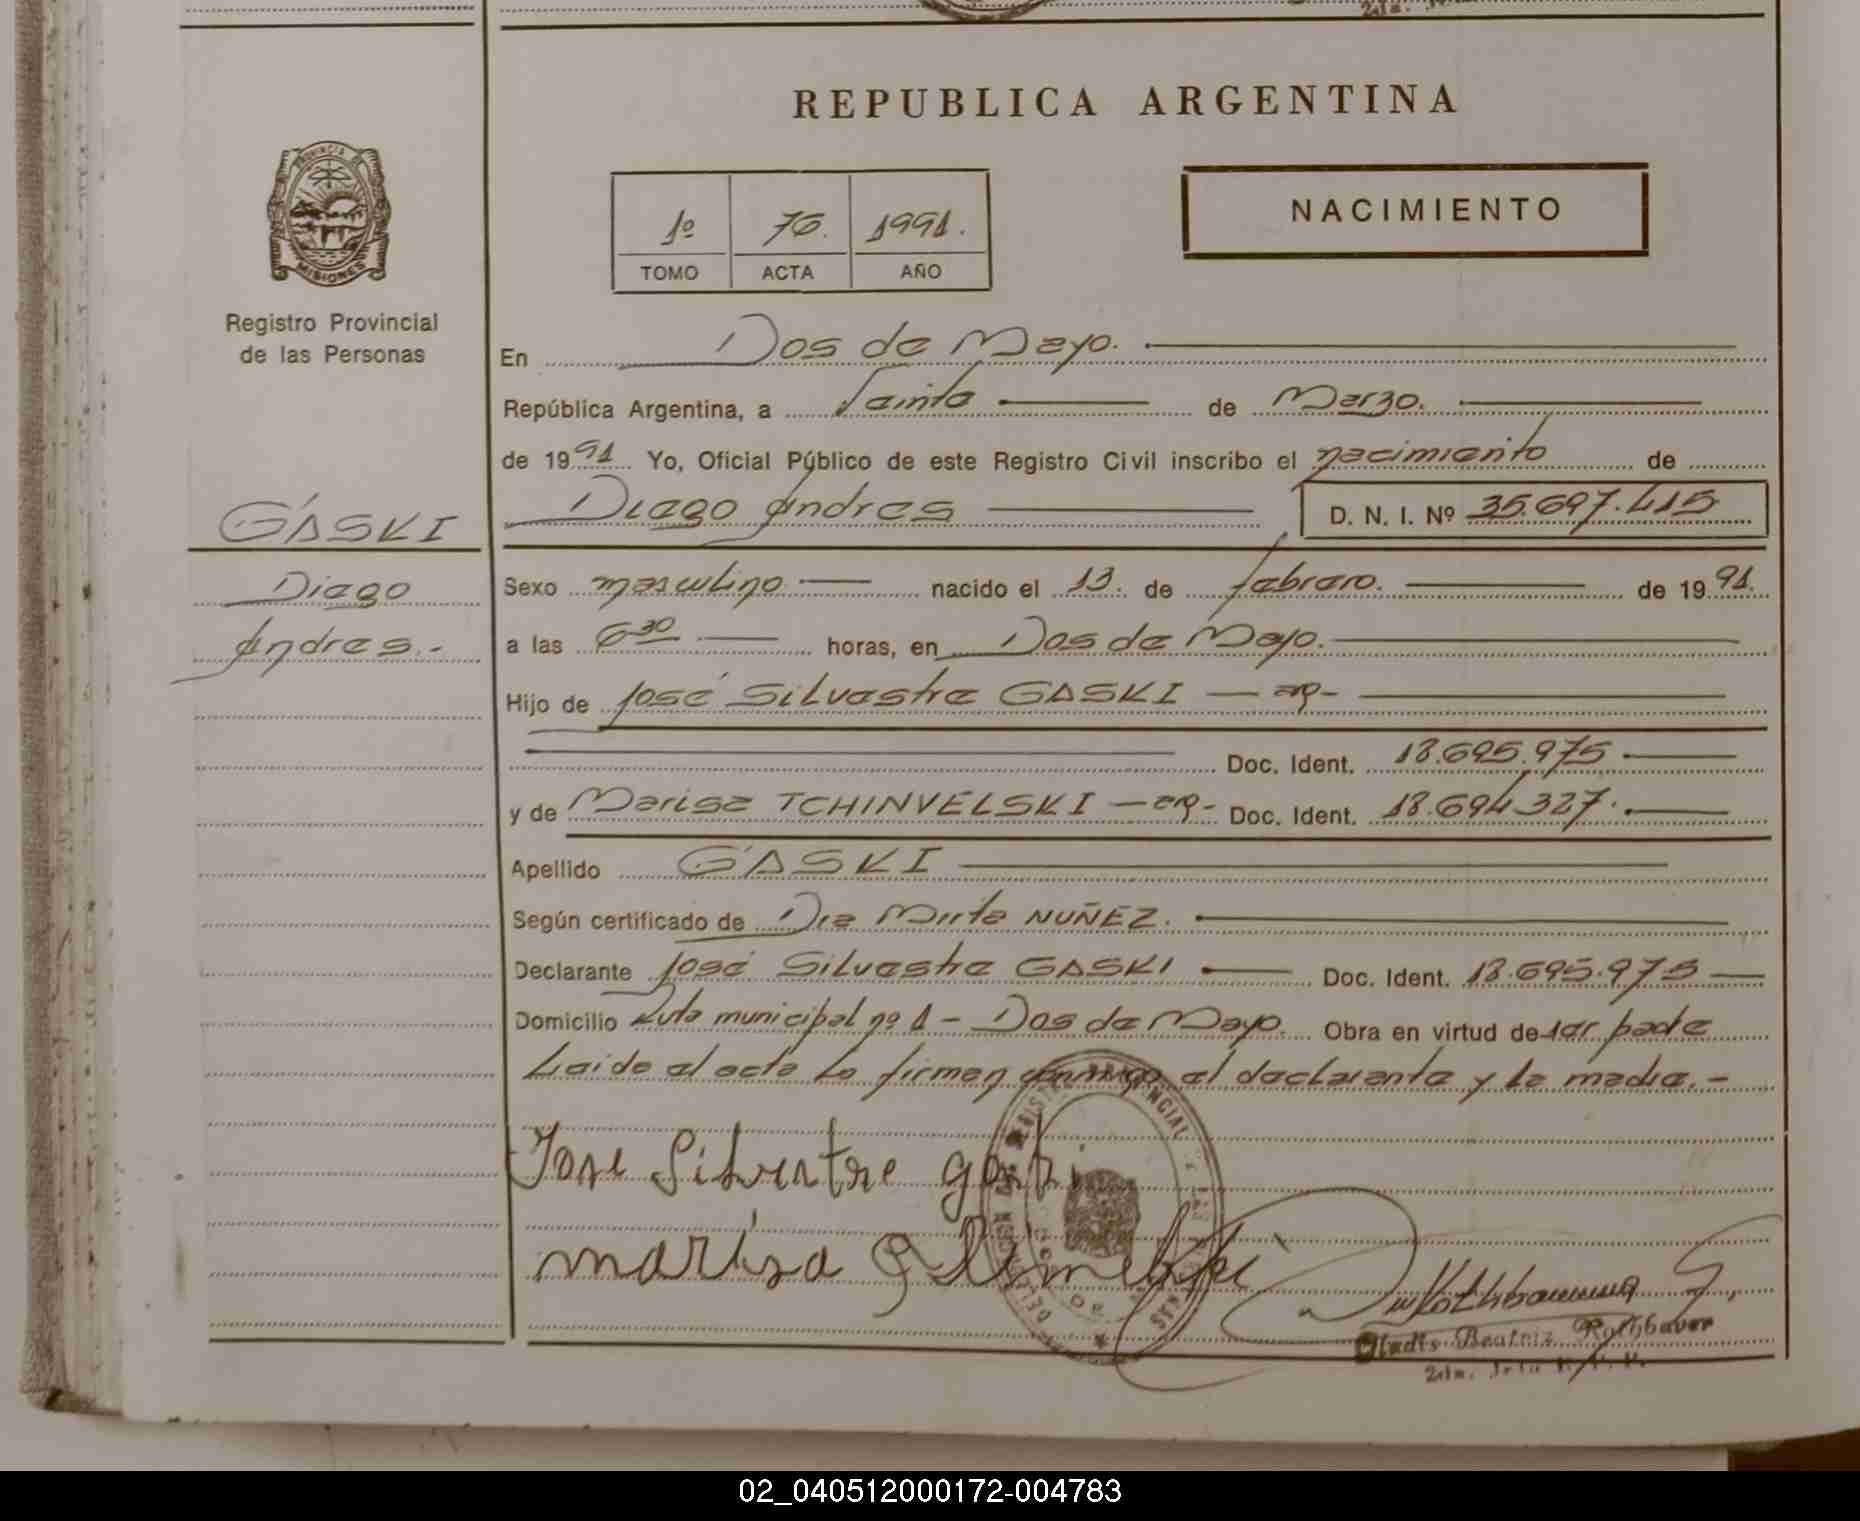 REPUBLICA ARGENTINA
PROVINCIA DE
MISIONES
Registro Provincial
de las Personas
1º 76. 1991.
TOMO ACTA AÑO
NACIMIENTO
En Dos de Mayo.
República Argentina, a Veinte de Marzo.
de 1991 Yo, Oficial Público de este Registro Civil inscribo el nacimiento de
Diego Andres D. N. I. Nº 35.697.415
GASKI
Diego
Andres.-
Sexo masculino nacido el 13. de febrero. de 1991.
a las 6 30 horas, en Dos de Mayo.
Hijo de José Silvestre GASKI — arg-
Doc. Ident. 18.695.975
y de Marisa TCHINVELSKI — arg- Doc. Ident. 18.694.327.
Apellido GASKI
Según certificado de Dra Mirta NUÑEZ.
Declarante José Silvestre GASKI Doc. Ident. 18.695.975
Domicilio Ruta municipal nº 1 - Dos de Mayo. Obra en virtud de ser padre
Leida el acta la firman conmigo el declarante y la madre.-
Jose Silvestre gaski
marisa
Gladis Beatriz Rothbauer
02_040512000172-004783